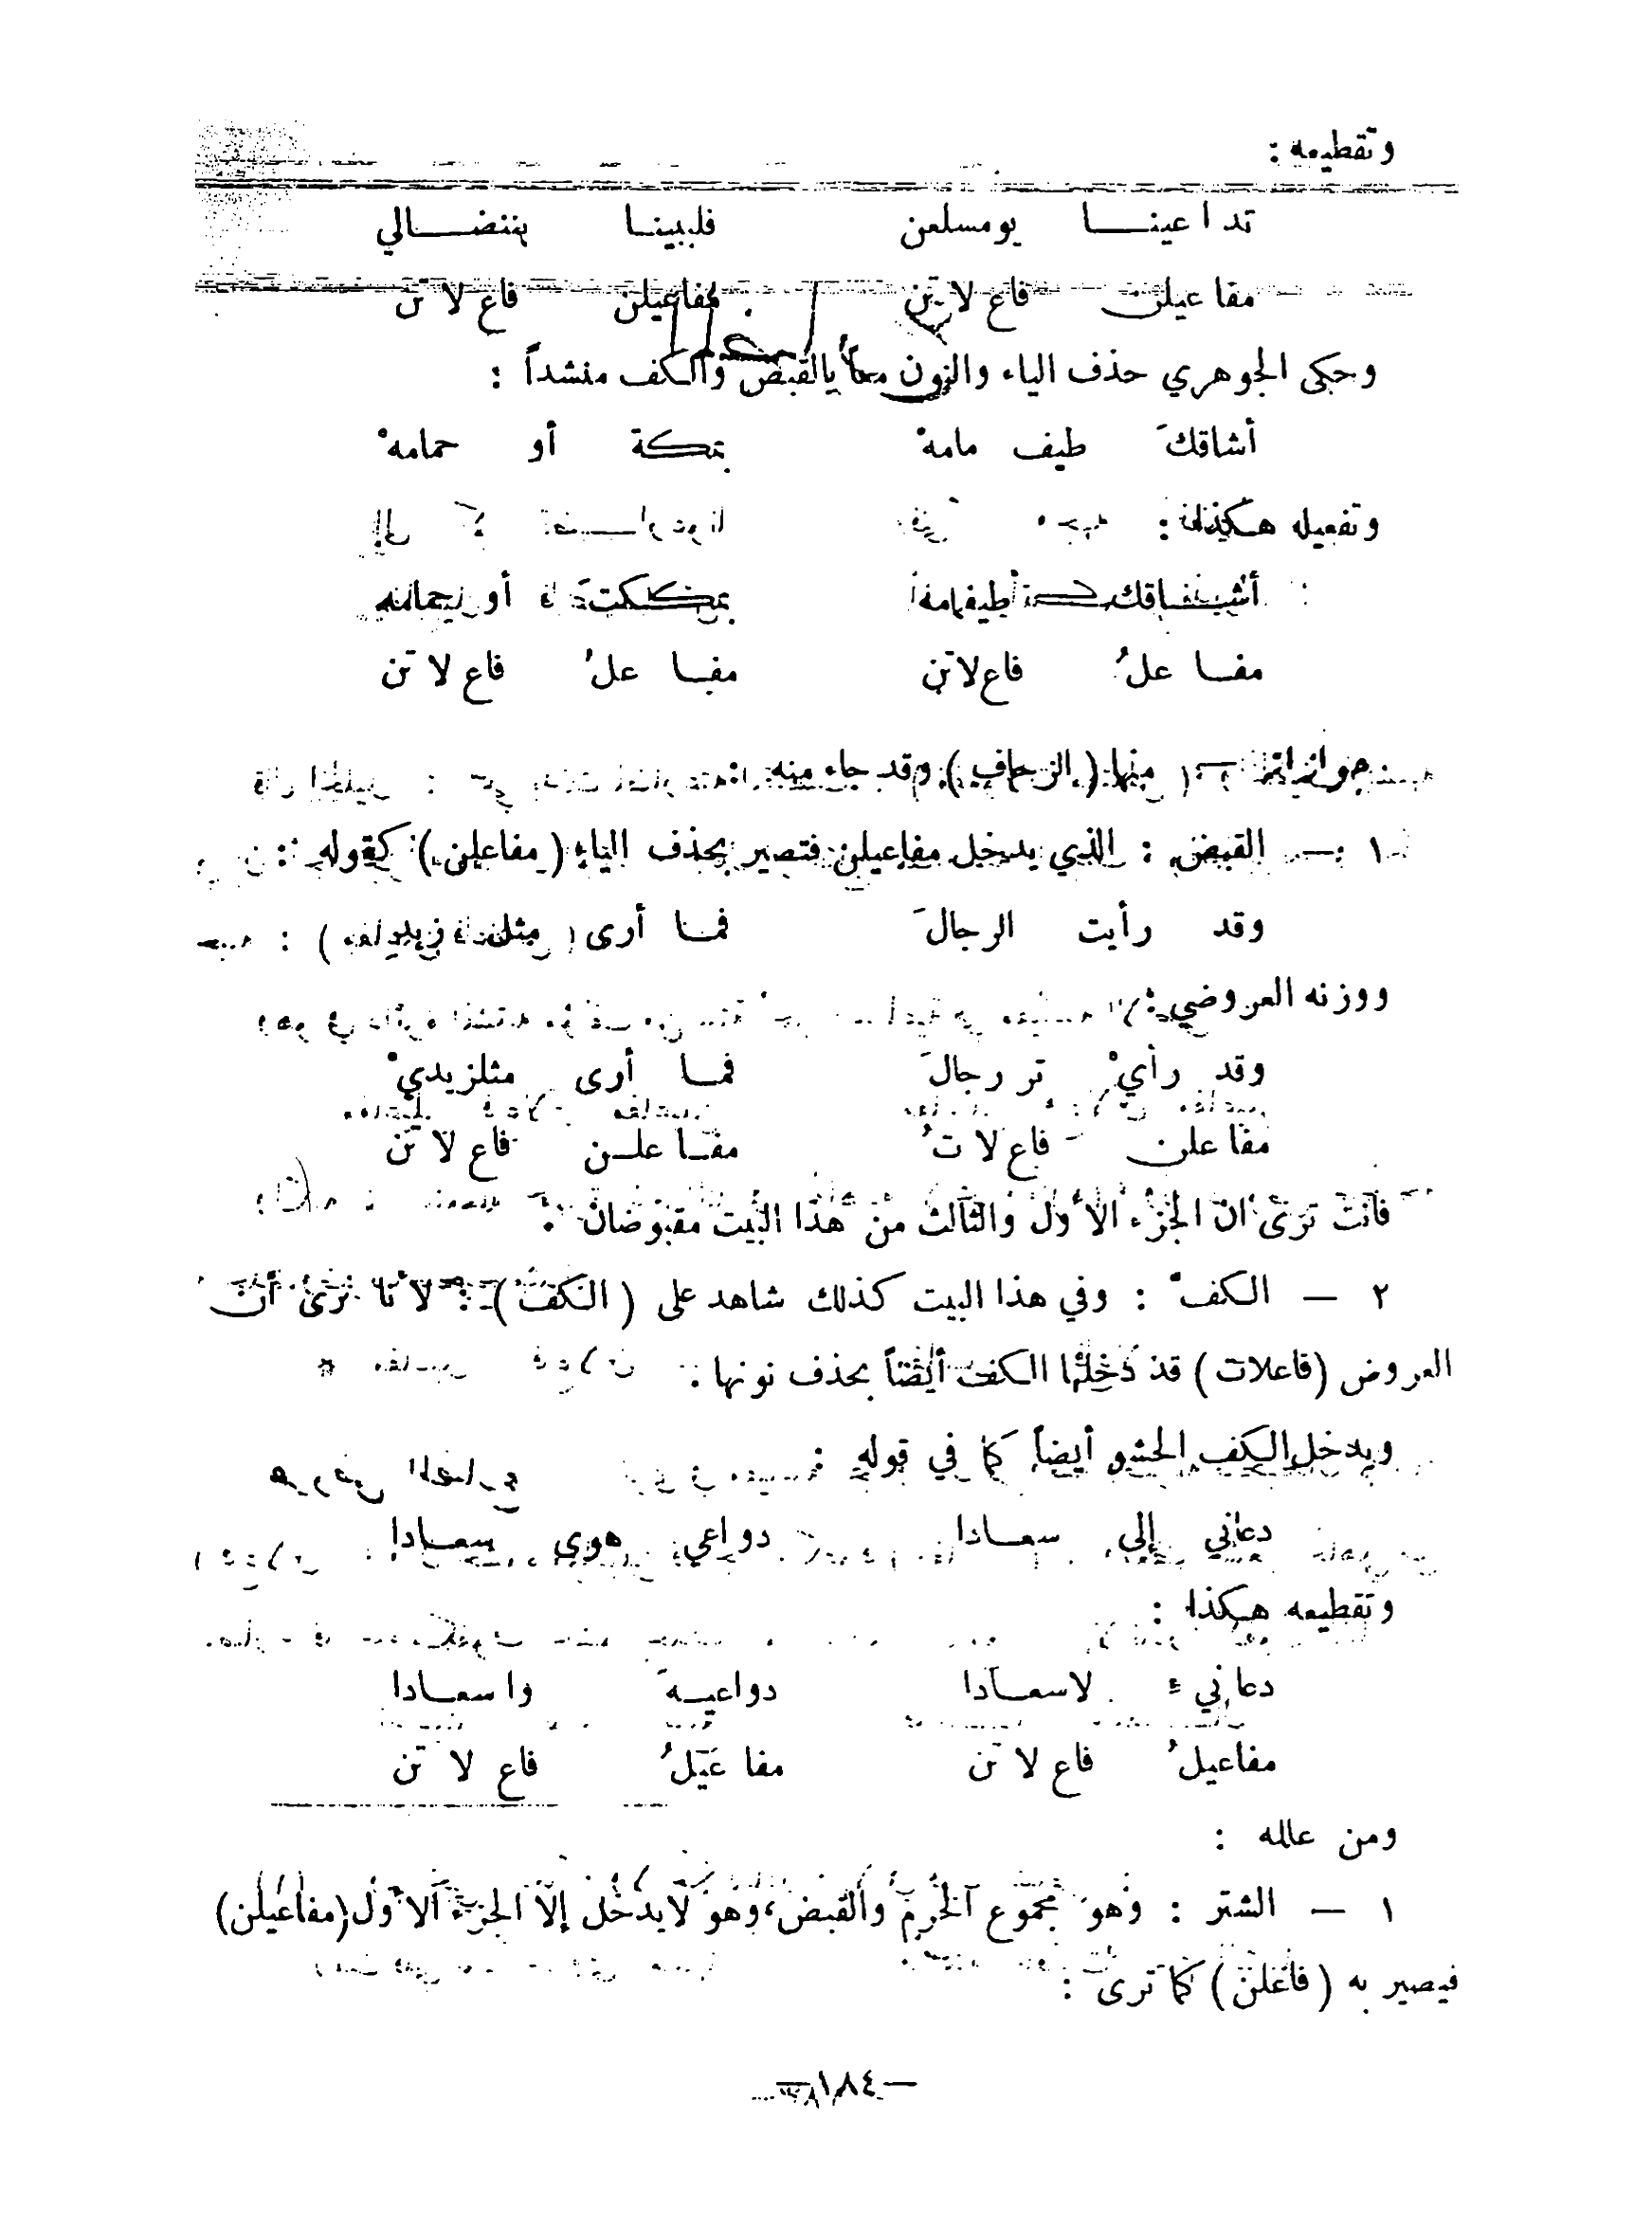 وتقطيعه :
تد ا عينــا يومسلعن فلبينا بننضـالي
مفا عيلن فاع لا تن مفاعيلن فاع لا تن
وحكى الجوهري حذف الياء والنون معاً بالقبض والكف منشداً :
أشاقكَ طيف مامهْ بمكة أو حمامهْ
وتفعيله هكذا :
مفـا علُ فاع لاتن مفـا علُ فاع لا تن
جوازاته — منها ( الزحاف ) وقد جاء منه :
١ — القبض : الذي يدخل مفاعيلن فتصير بحذف الياء ( مفاعلن ) كقوله :
وقد رأيت الرجالَ فمـا أرى مثل زيد
ووزنه العروضي :
وقد رأيْ تر رجالَ فمـا أرى مثلزيديْ
مفا علن فاع لا تُ مفـا علـن فاع لا تن
فأنت ترى ان الجزء الأول والثالث من هذا البيت مقبوضان .
٢ — الكف : وفي هذا البيت كذلك شاهد على ( الكف ) : لأنا نرى أن
العروض (فاعلات ) قد دخلها الكف أيضاً بحذف نونها .
ويدخل الكف الحشو أيضاً كما في قوله :
دعاني إلى سعـادا دواعي هوى سعـادا
وتقطيعه هكذا :
دعاني ء لاسعـادا دواعيـهَ وا سعـادا
مفاعيلُ فاع لا تن مفا عيلُ فاع لا تن
ومن علله :
١ — الشتر : وهو مجموع الخرم والقبض، وهو لا يدخل إلا الجزء الأول (مفاعيلن)
فيصير به ( فاعلن ) كما ترى :
— ١٨٤ —